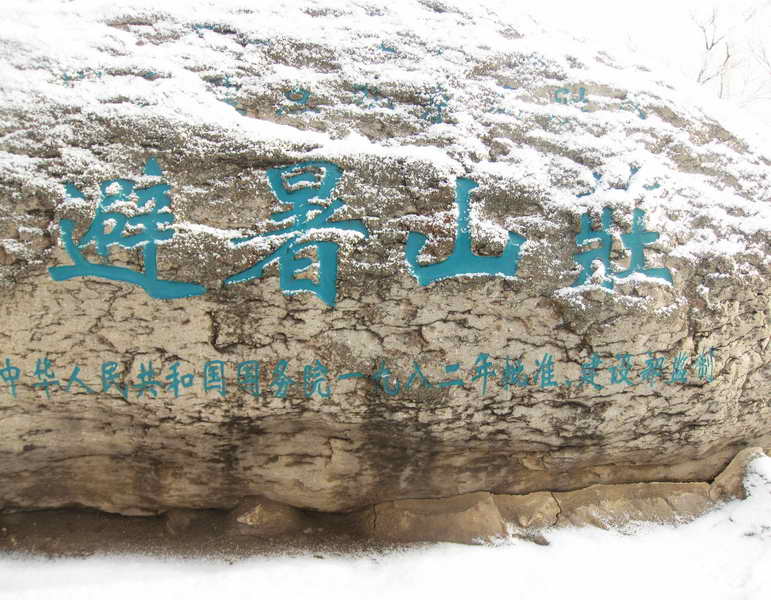 避暑山莊
中华人民共和国国务院一九八二年批准、建设部监制